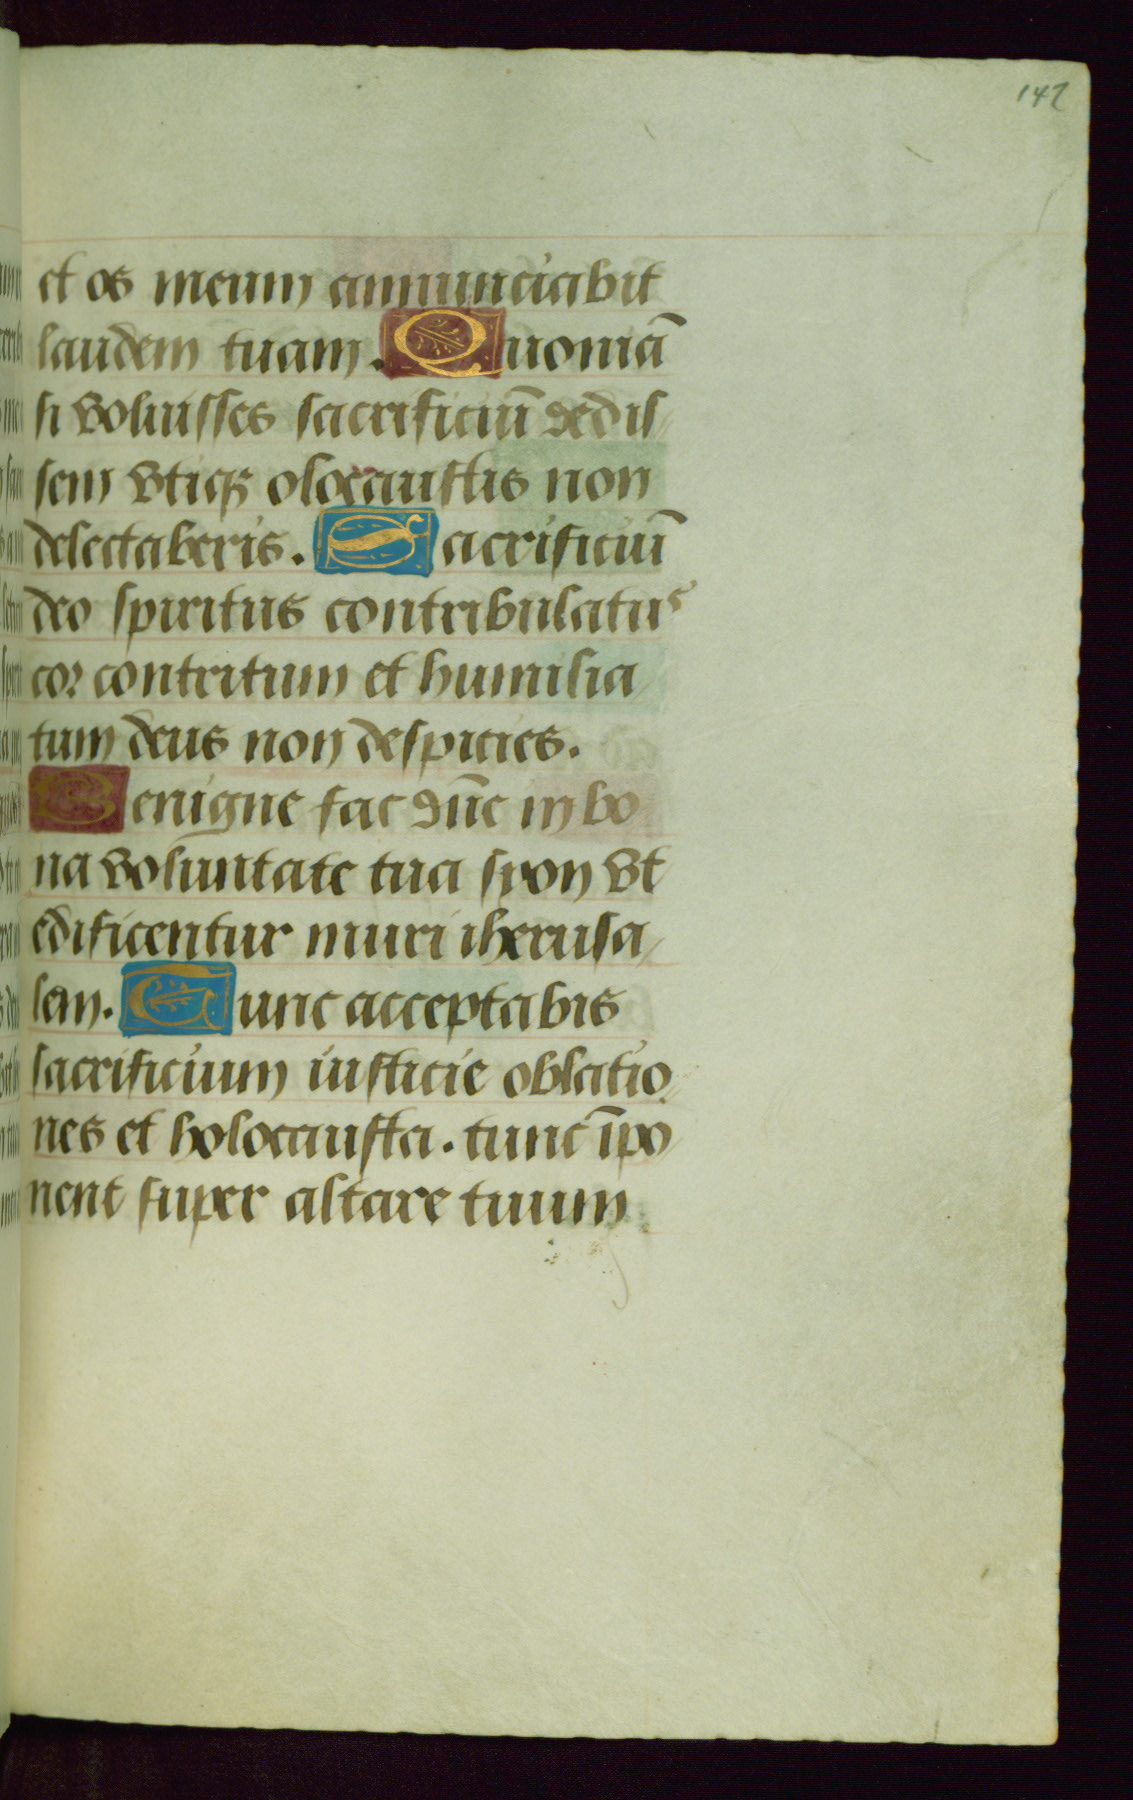 142
et os meum annunciabit
laudem tuam. Quoniā
si voluisses sacrificiū dedis
sem vtiqꝫ olocaustis non
delectaberis. Sacrificiū
deo spiritus contribulatus
cor contritum et humilia
tum deus non despicies.
Benigne fac dn̄e in bo
na voluntate tua syon vt
edificentur muri iherusa
lem. Tunc acceptabis
sacrificium iusticie oblatio
nes et holocausta. tunc īpo
nent super altare tuum